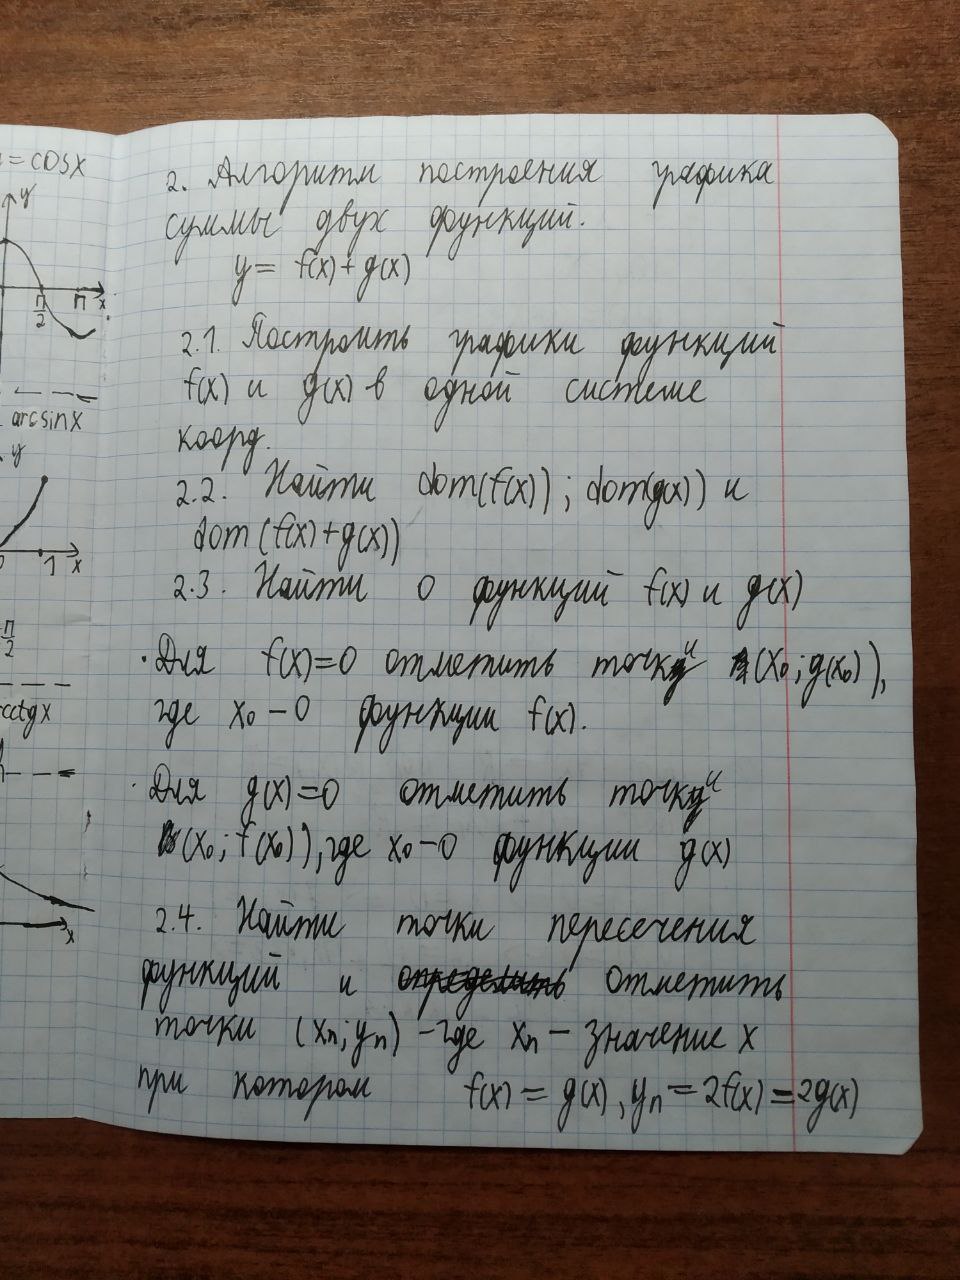 = cosx
y
π/2
π
x
arcsinx
y
1
x
π/2
arcctgx
x
2. Алгоритм построения графика
суммы двух функций.
y = f(x) + g(x)
2.1. Построить графики функций
f(x) и g(x) в одной системе
коорд.
2.2. Найти dom(f(x)) ; dom(g(x)) и
dom (f(x)+g(x))
2.3. Найти 0 функций f(x) и g(x)
· Для f(x)=0 отметить точки (x₀ ; g(x₀)),
где x₀ – 0 функции f(x).
· Для g(x)=0 отметить точки
(x₀; f(x₀)), где x₀ – 0 функции g(x)
2.4. Найти точки пересечения
функций и определить отметить
точки (xₙ; yₙ) – где xₙ – значение x
при котором f(x) = g(x), yₙ = 2f(x) = 2g(x)